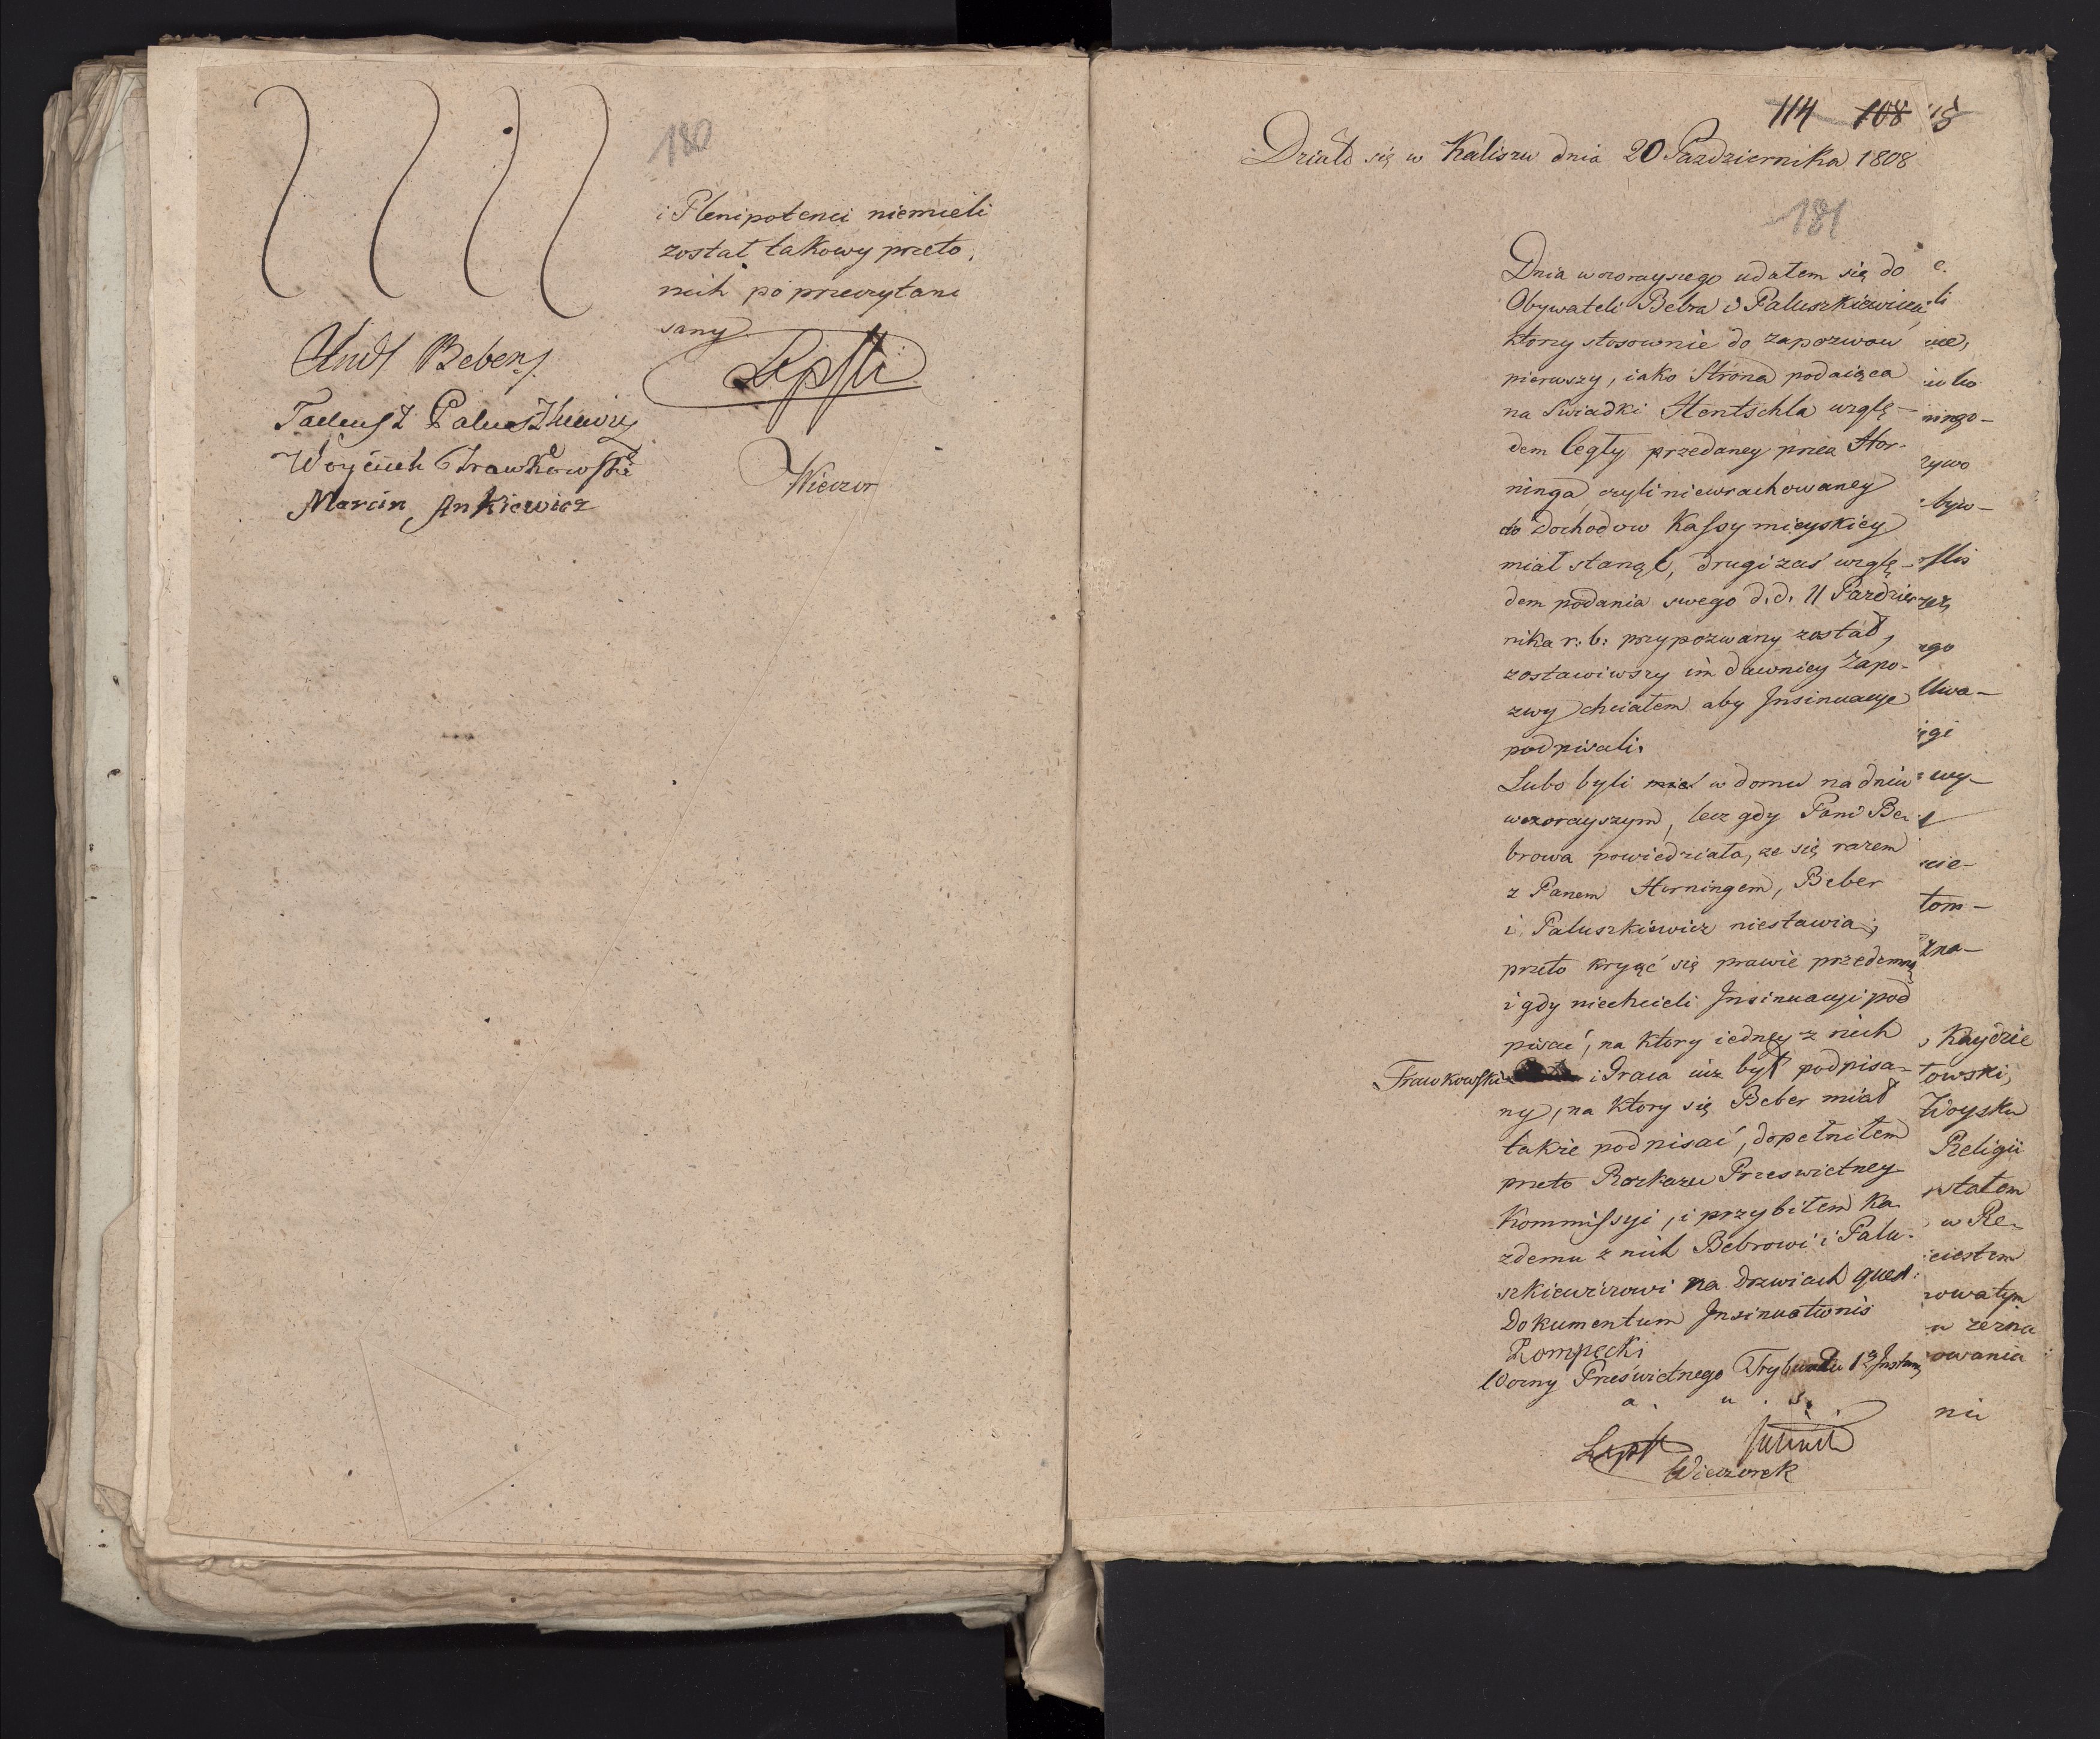 180
i Plenipotenci niemieli
został takowy przeto
nich po przeczytani
sany
Lipski
Beber
Tadeusz Paluszkiewicz
Woyciech Trawkowski
Marcin Ankiewicz
Wieczor
114 108
Działo się w Kaliszu dnia 20 Pazdziernika 1808
181
Dnia wczorayszego udałem się do
Obywateli Bebra i Paluszkiewicza,
ktorzy stosownie do zapozwow
pierwszy, iako Strona podaiąca
na Swiadki Hentschla wzglę-
dem Cegły przedaney przez Hor-
ninga, czyli niewrachowaney
do Dochodow Kassy mieyskiey
miał stanąć, drugi zaś wzglę-
dem podania swego d. d. 11 Pazdzier
nika r: b: przypozwany został,
zostawiwszy im dawniey Zapo-
zwy chciałem aby Jnsinuacye
podpisali.
Lubo byli w domu na dniu
wczorayszym, lecz gdy Pani Be-
browa powiedziała, ze się razem
z Panem Horningem, Beber
i Paluszkiewicz niestawia,
przeto kryąć się prawie przedemną
i gdy niechcieli Jnsinuacyi pod
pisać, na ktory iedney z nich
Trawkowski i Graca iuz był podpisa-
ny, na ktory się Beber miał
takze podpisać, dopełniłem
przeto Rozkazu Przeswietney
Kommissyi, i przybiłem Ka-
zdemu z nich Bebrowi i Palu-
szkiewiczowi na drzwiach quest:
Dokumentum Jnsinuationis
Rompecki
Wozny Prześwietnego Trybunału 1ey Jnstanc
a. u. s.
Lipski
Wieczorek
e.
li
ningo-
żywo
byw-
rego
Uwa-
wy-
cie-
tom-
zna-
Kaydzie
towski,
Woysku
Religii
stałem
w Re-
iciestem
rowatym
owania
nu